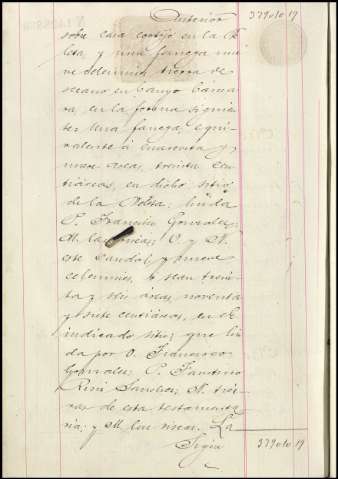 Anterior 379010 19
sobre casa cortijo en la
y una fanega nue
ve celemines tierra de
secano en
en la forma siguien
te: Una fanega, equi
valente á cuarenta y
nueve áreas, treinta cen
tiáreas, en dicho sitio
de la linda
P. Francisco Gonzalez;
M. O. y N.
este caudal, y nueve
celemines, ó sean trein
ta y seis áreas, noventa
y siete centiáreas, en el
indicado sitio; que lin
da por O. Francisco
Gonzalez; P. Faustino
Ruiz Sanchez; N. tier
ras de esta testamenta
ría; y M. La
Sigue 379010 19